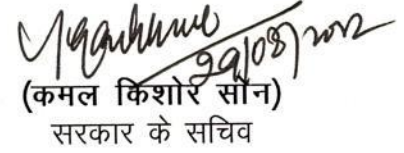 29/08/2012
(कमल किशोर सोन)
सरकार के सचिव